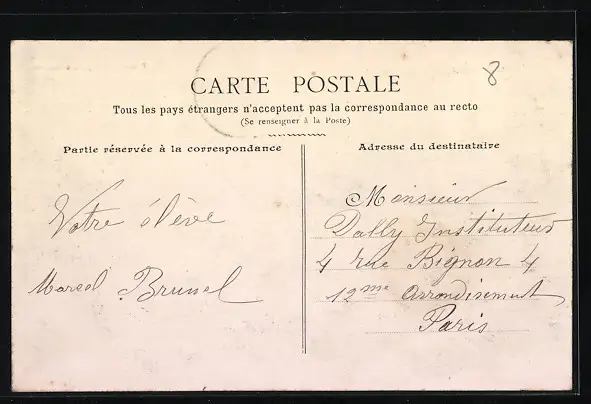 8
CARTE POSTALE
Tous les pays étrangers n'acceptent pas la correspondance au recto
(Se renseigner à la Poste)
Partie réservée à la correspondance
Votre élève
Marcel Brunel
Adresse du destinataire
Monsieur
Dally Instituteur
4 rue Bignon 4
12me Arrondisement
Paris